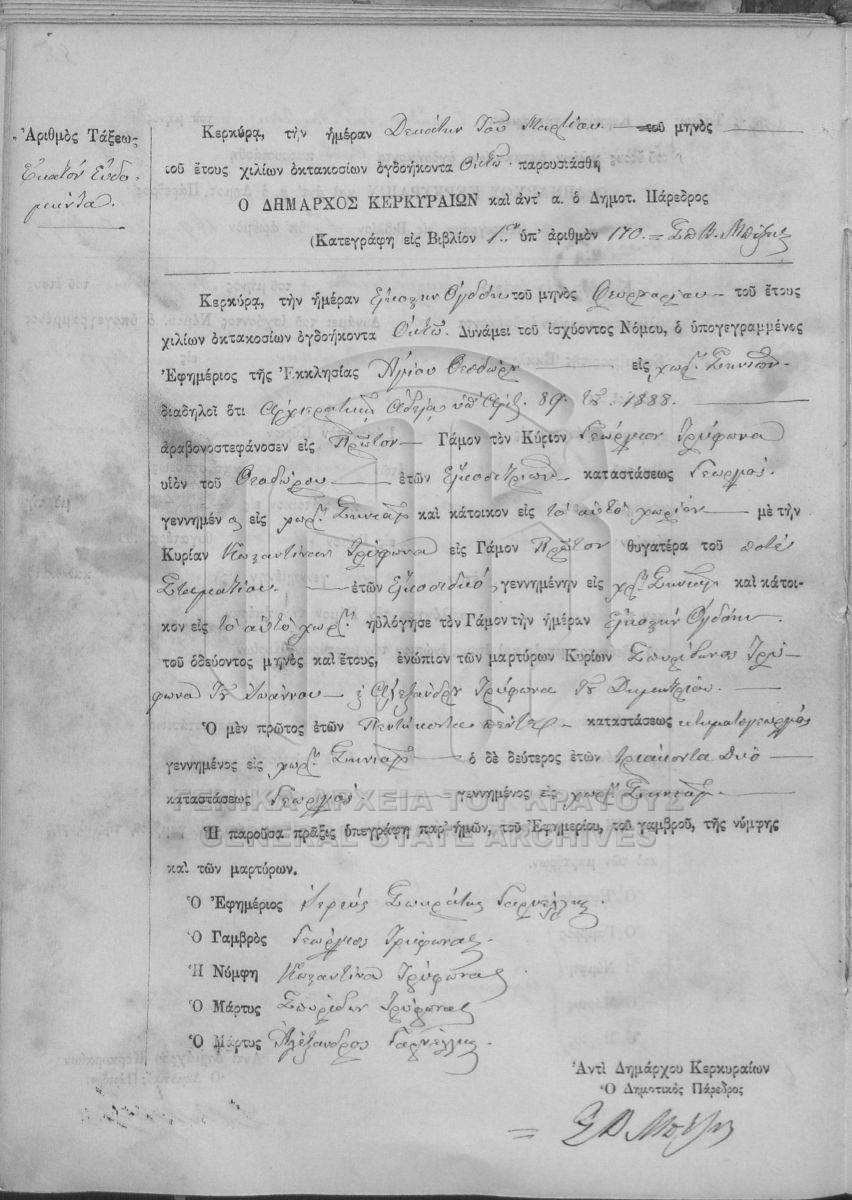 Ἀριθμὸς Τάξεως
Ἑκατὸν Ἑβδο-
μῆντα.
Κερκύρᾳ, τὴν ἡμέραν Δεκάτην τοῦ Μαρτίου τοῦ μηνὸς
τοῦ ἔτους χιλίων ὀκτακοσίων ὀγδοήκοντα Ὀκτὼ παρουσιάσθη
Ο ΔΗΜΑΡΧΟΣ ΚΕΡΚΥΡΑΙΩΝ καὶ ἀντ' α. ὁ Δημοτ. Πάρεδρος
(Κατεγράφη εἰς Βιβλίον 1ον ὑπ' ἀριθμὸν 170 =
Κερκύρᾳ, τὴν ἡμέραν Εἰκοστὴν Ὀγδόην τοῦ μηνὸς Φευρουαρίου τοῦ ἔτους
χιλίων ὀκτακοσίων ὀγδοήκοντα Ὀκτὼ. Δυνάμει τοῦ ἰσχύοντος Νόμου, ὁ ὑπογεγραμμένος
Ἐφημέριος τῆς Ἐκκλησίας Ἁγίου Θεοδώρου εἰς χωρ.
διαδηλοῖ ὅτι Ἀρχιερατικῇ Ἀδείᾳ ὑπ' Ἀριθ. 89. 1888.
ἀραβονοστεφάνοσεν εἰς Πρῶτον Γάμον τὸν Κύριον Γεώργιον Τρύφωνα
υἱὸν τοῦ Θεοδώρου ἐτῶν Εἰκοσιτριῶν καταστάσεως Γεωργός.
γεννημένον εἰς χωρ. καὶ κάτοικον εἰς τὸ αὐτὸ χωρίον μὲ τὴν
Κυρίαν Κωσταντίναν Τρύφωνα εἰς Γάμον Πρῶτον θυγατέρα τοῦ ποτὲ
Σταματίου. ἐτῶν Εἰκοσιδύο, γεννημένην εἰς χωρ. καὶ κάτοι-
κον εἰς τὸ αὐτὸ χωρ. ηὐλόγησε τὸν Γάμον τὴν ἡμέραν Εἰκοστὴν Ὀγδόην
τοῦ ὁδεύοντος μηνὸς καὶ ἔτους, ἐνώπιον τῶν μαρτύρων Κυρίων Σπυρίδωνος Τρύ-
φωνα τοῦ Ἰωάννου Ἀλεξάνδρου Τρύφωνα τοῦ Δημητρίου.
Ὁ μὲν πρῶτος ἐτῶν Πεντήκοντα πέντε καταστάσεως κτηματογεωργός
γεννημένος εἰς χωρ. ὁ δὲ δεύτερος ἐτῶν τριάκοντα Δυὸ
καταστάσεως Γεωργός γεννημένος εἰς χωρ.
ΓΕΝΙΚΑ ΑΡΧΕΙΑ ΤΟΥ ΚΡΑΤΟΥΣ
GENERAL STATE ARCHIVES
Ἡ παροῦσα πρᾶξις ὑπεγράφη παρ' ἡμῶν, τοῦ Ἐφημερίου, τοῦ γαμβροῦ, τῆς νύμφης
καὶ τῶν μαρτύρων.
Ὁ Ἐφημέριος Ἱερεύς Σωκράτης
Ὁ Γαμβρὸς Γεώργιος Τρύφωνας.
Ἡ Νύμφη Κωσταντίνα Τρύφωνας
Ὁ Μάρτυς Σπυρίδων Τρύφωνας
Ὁ Μάρτυς Ἀλέξανδρος
Ἀντὶ Δημάρχου Κερκυραίων
Ὁ Δημοτικὸς Πάρεδρος